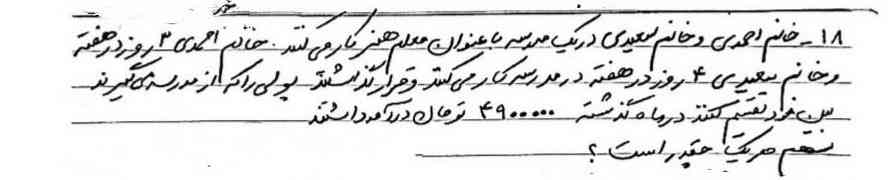 ۱۸- خانم احمدی و خانم سعیدی در یک مدرسه با عنوان معلم هنر کار می کنند. خانم احمدی ۳ روز در هفته
و خانم سعیدی ۴ روز در هفته در مدرسه کار می کنند و قرار گذاشتند پولی را که از مدرسه می گیرند
بین خود تقسیم کنند در ماه گذشته ۴۹۰۰۰۰۰ تومان درآمد داشتند
سهم هر یک چقدر است ؟